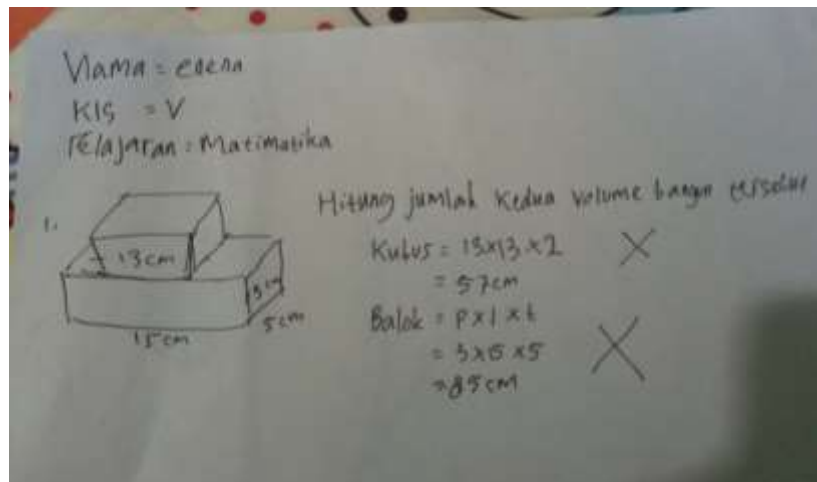 Nama = edena
Kls = V
Pelajaran : Matimatika
1.
13 cm
3 cm
5 cm
15 cm
Hitung jumlah kedua volume bangun tersebut
Kubus = 13x13x2
= 57cm
Balok = P x l x t
= 3x5 x5
= 85 cm